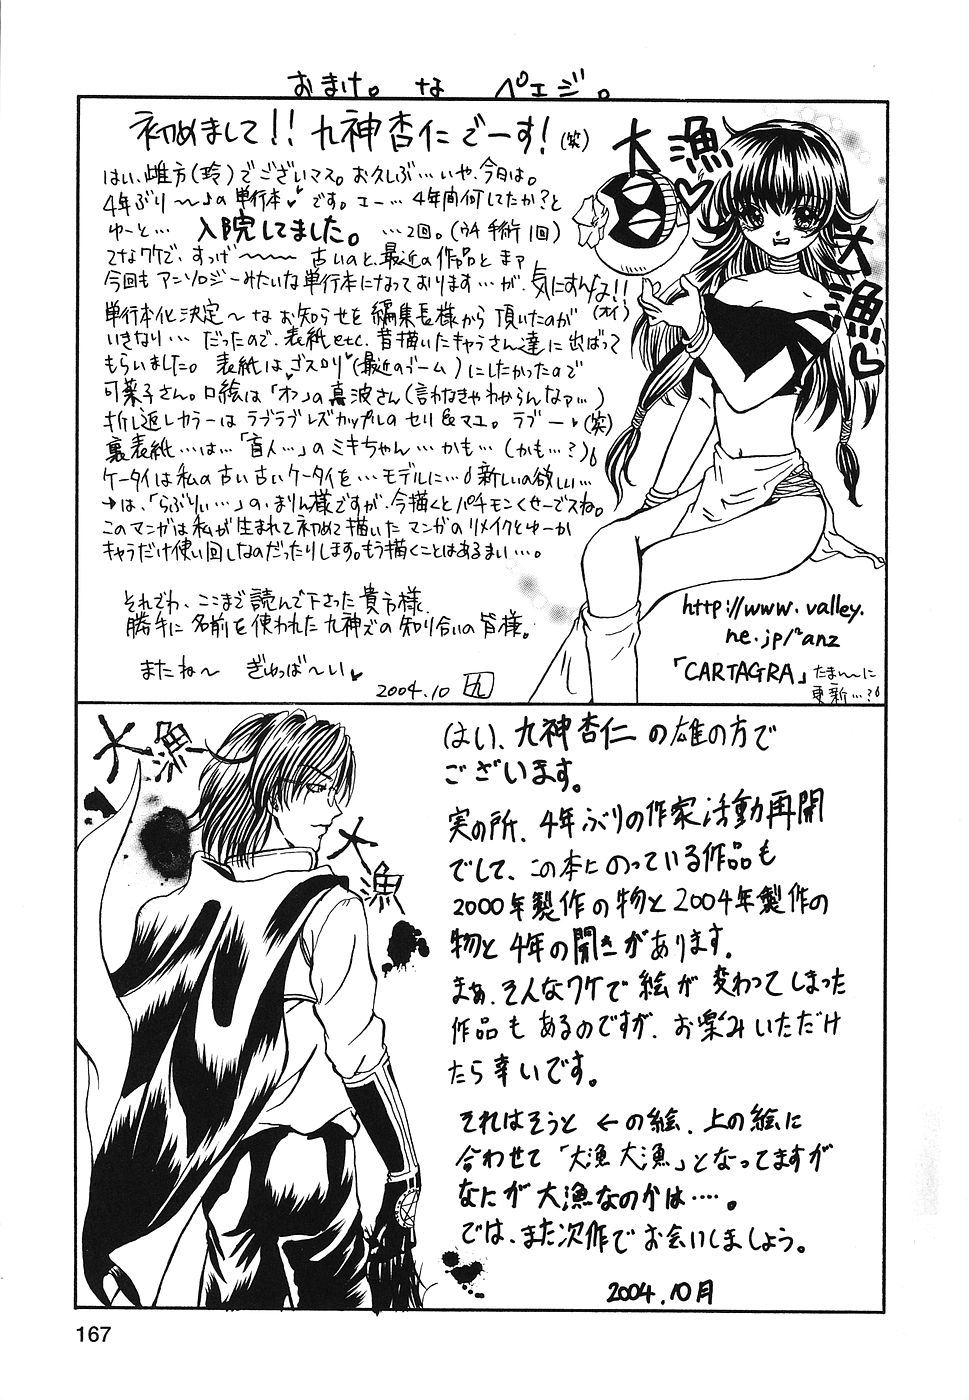 おまけ。な ペエジ。
初めまして!! 九神杏仁でーす!(笑)
はい、雌方(玲)でございマス。お久しぶ…いや、今日は。
4年ぶり〜♪の単行本♥です。エー…4年間何してたか?と
ゆーと… 入院してました。…2回。(ウチ手術1回)
てなワケで、すっげ〜〜〜古いのと、最近の作品とまァ
今回もアンソロジーみたいな単行本になっております…が、気にすんな!!
(オイ)
単行本化決定〜なお知らせを編集長様から頂いたのが
いきなり…だったので、表紙etc.昔描いたキャラさん達に出ばって
もらいました。表紙はゴスロリ♥(最近のブーム)にしたかったので
可菜子さん。口絵は「オンの真波さん(言わなきゃわからんなァ…)
折し返しカラーはラブラブレズカップルのセリ&マユ。ラブー♥(笑)
裏表紙…は…「盲人…」のミキちゃん…かも…(かも…?)
ケータイは私の古い古いケータイを…モデルに…新しいの欲しい…
→は、「らぶりぃ…」の、まりん様ですが、今描くとパチモンくせーでスね。
このマンガは私が生まれて初めて描いたマンガのリメイクとゆーか
キャラだけ使い回しなのだったりします。もう描くことはあるまい…。
それでわ、ここまで読んで下さった貴方様、
勝手に名前を使われた九神ズの知り合いの皆様。
またね〜 ぎゅっば〜い♥
2004.10 九
大漁♥
大漁♥
http://www.valley.
ne.jp/~anz
「CARTAGRA」たま〜〜に
更新…?
大漁
大漁
はい、九神杏仁の雄の方で
ございます。
実の所、4年ぶりの作家活動再開
でして、この本にのっている作品も
2000年製作の物と2004年製作の
物と4年の開きがあります。
まぁ、そんなワケで絵が変わってしまった
作品もあるのですが、お楽しみいただけ
たら幸いです。
それはそうと←の絵、上の絵に
合わせて「大漁大漁」となってますが
なにが大漁なのかは…。
では、また次作でお会いしましょう。
2004.10月
167